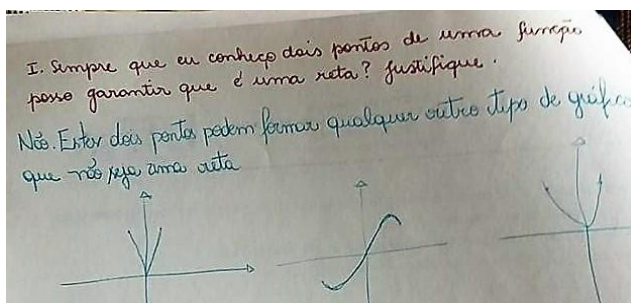 I. Sempre que eu conheço dois pontos de uma função
posso garantir que é uma reta? Justifique.
Não. Estes dois pontos podem formar qualquer outro tipo de gráfico
que não seja uma reta